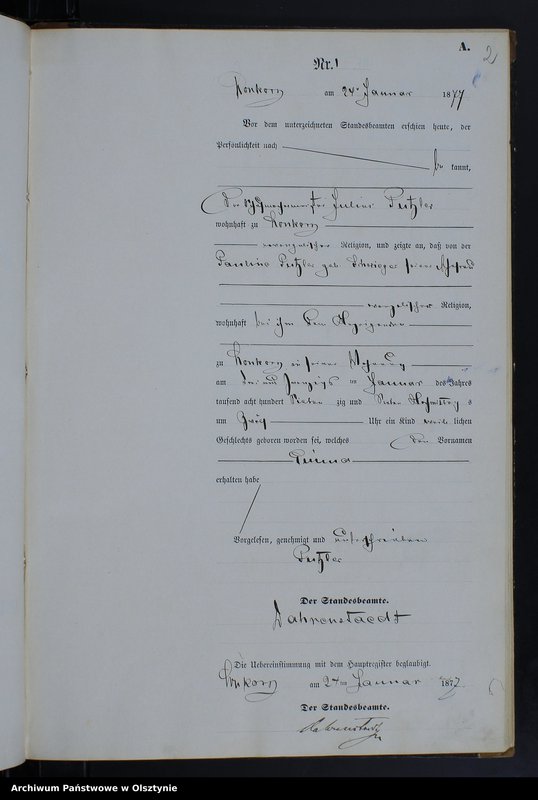 A.
2
Nr. 1
Konkorz am 24ten Januar 1877
Vor dem unterzeichneten Standesbeamten erschien heute, der
Persönlichkeit nach
be kannt,
der Julius
wohnhaft zu Konkorz
evangelischer Religion, und zeigte an, daß von der
Pauline geb.
evangelischer Religion,
wohnhaft bei ihm
zu Konkorz in seiner Wohnung
am drei und zwanzigsten Januar des Jahres
tausend acht hundert sieben zig und sieben Nachmittag s
um zwei Uhr ein Kind weib lichen
Geschlechts geboren worden sei, welches den Vornamen
Emma
erhalten habe
Vorgelesen, genehmigt und unterschrieben
Der Standesbeamte.
Dahrenstaedt
Die Uebereinstimmung mit dem Hauptregister beglaubigt.
Konkorz am 24ten Januar 1877
Der Standesbeamte.
Dahrenstaedt
Archiwum Państwowe w Olsztynie